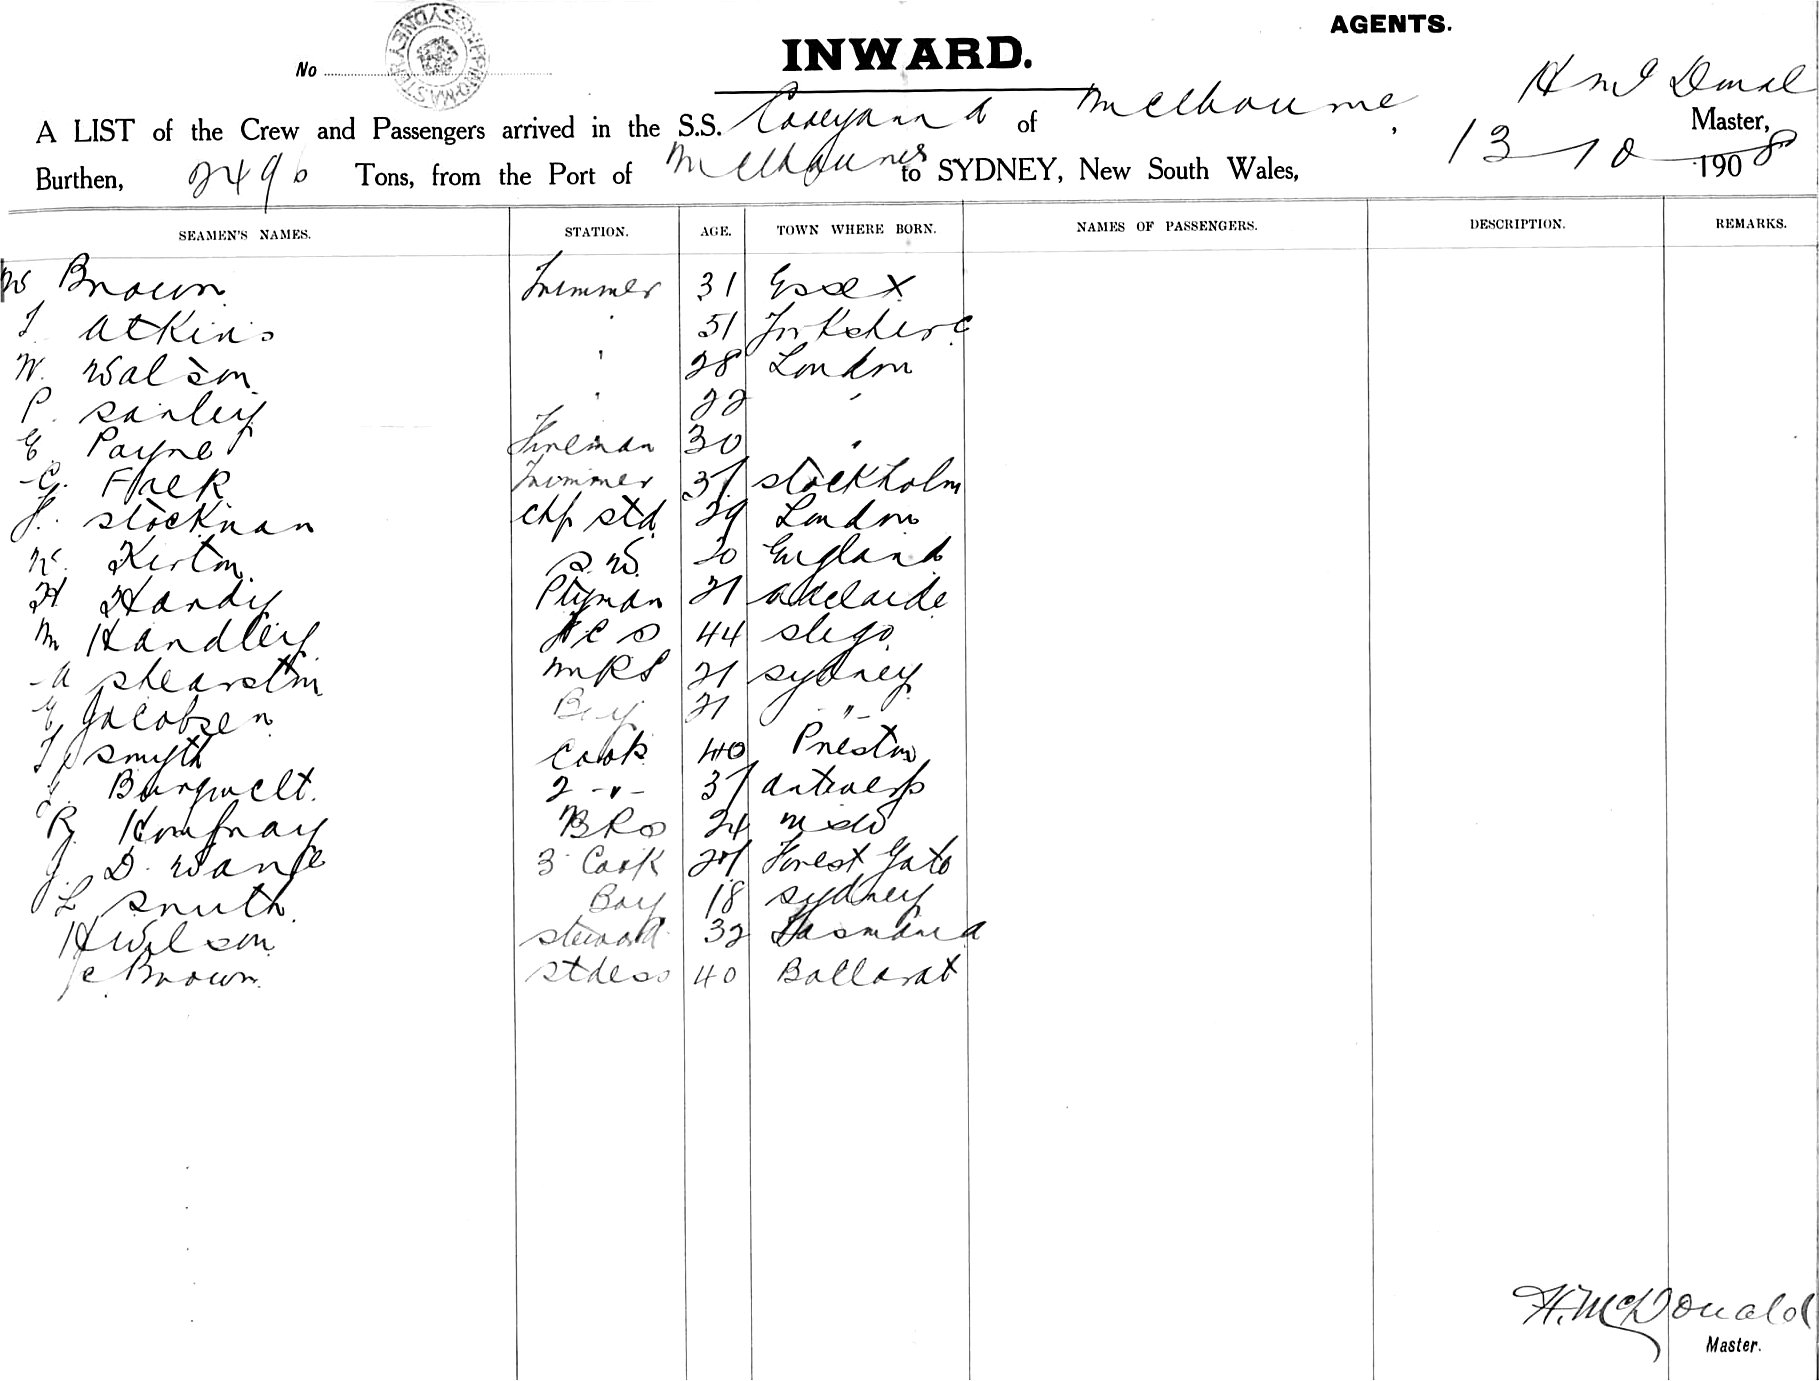 AGENTS.
INWARD.
No
SHIPPING MASTER SYDNEY
H McDonal
A LIST of the Crew and Passengers arrived in the S.S. Cooeyanna of Melbourne, Master,
Burthen, 2496 Tons, from the Port of Melbourne to SYDNEY, New South Wales, 13 10 1908
SEAMEN'S NAMES. STATION. AGE. TOWN WHERE BORN. NAMES OF PASSENGERS. DESCRIPTION. REMARKS.
W Brown Trimmer 31 Essex
T Atkins " 51 Yorkshire
W. Walson " 28 London
P. Sanley " 22 "
E Payne Fireman 30 "
C. Falk Trimmer 37 Stockholm
Stockman Chf Std 29 London
Kirton S.W. 20 England
H Handy Ptyman 21 Adelaide
M Handley F C S 44 Sligo
A Shearston MRS 21 Sydney
E Jacobsen Boy 21 -"-
T Smyth Cook 40 Preston
Burgwelt. 2 -"- 37 Antwerp
R Homfray BRS 24 NSW
J. D. Wane 3 Cook 27 Forest Gate
L Smith Boy 18 Sydney
H Wilson Steward 32 Tasmania
C Brown Stdess 40 Ballarat
H. McDonald
Master.